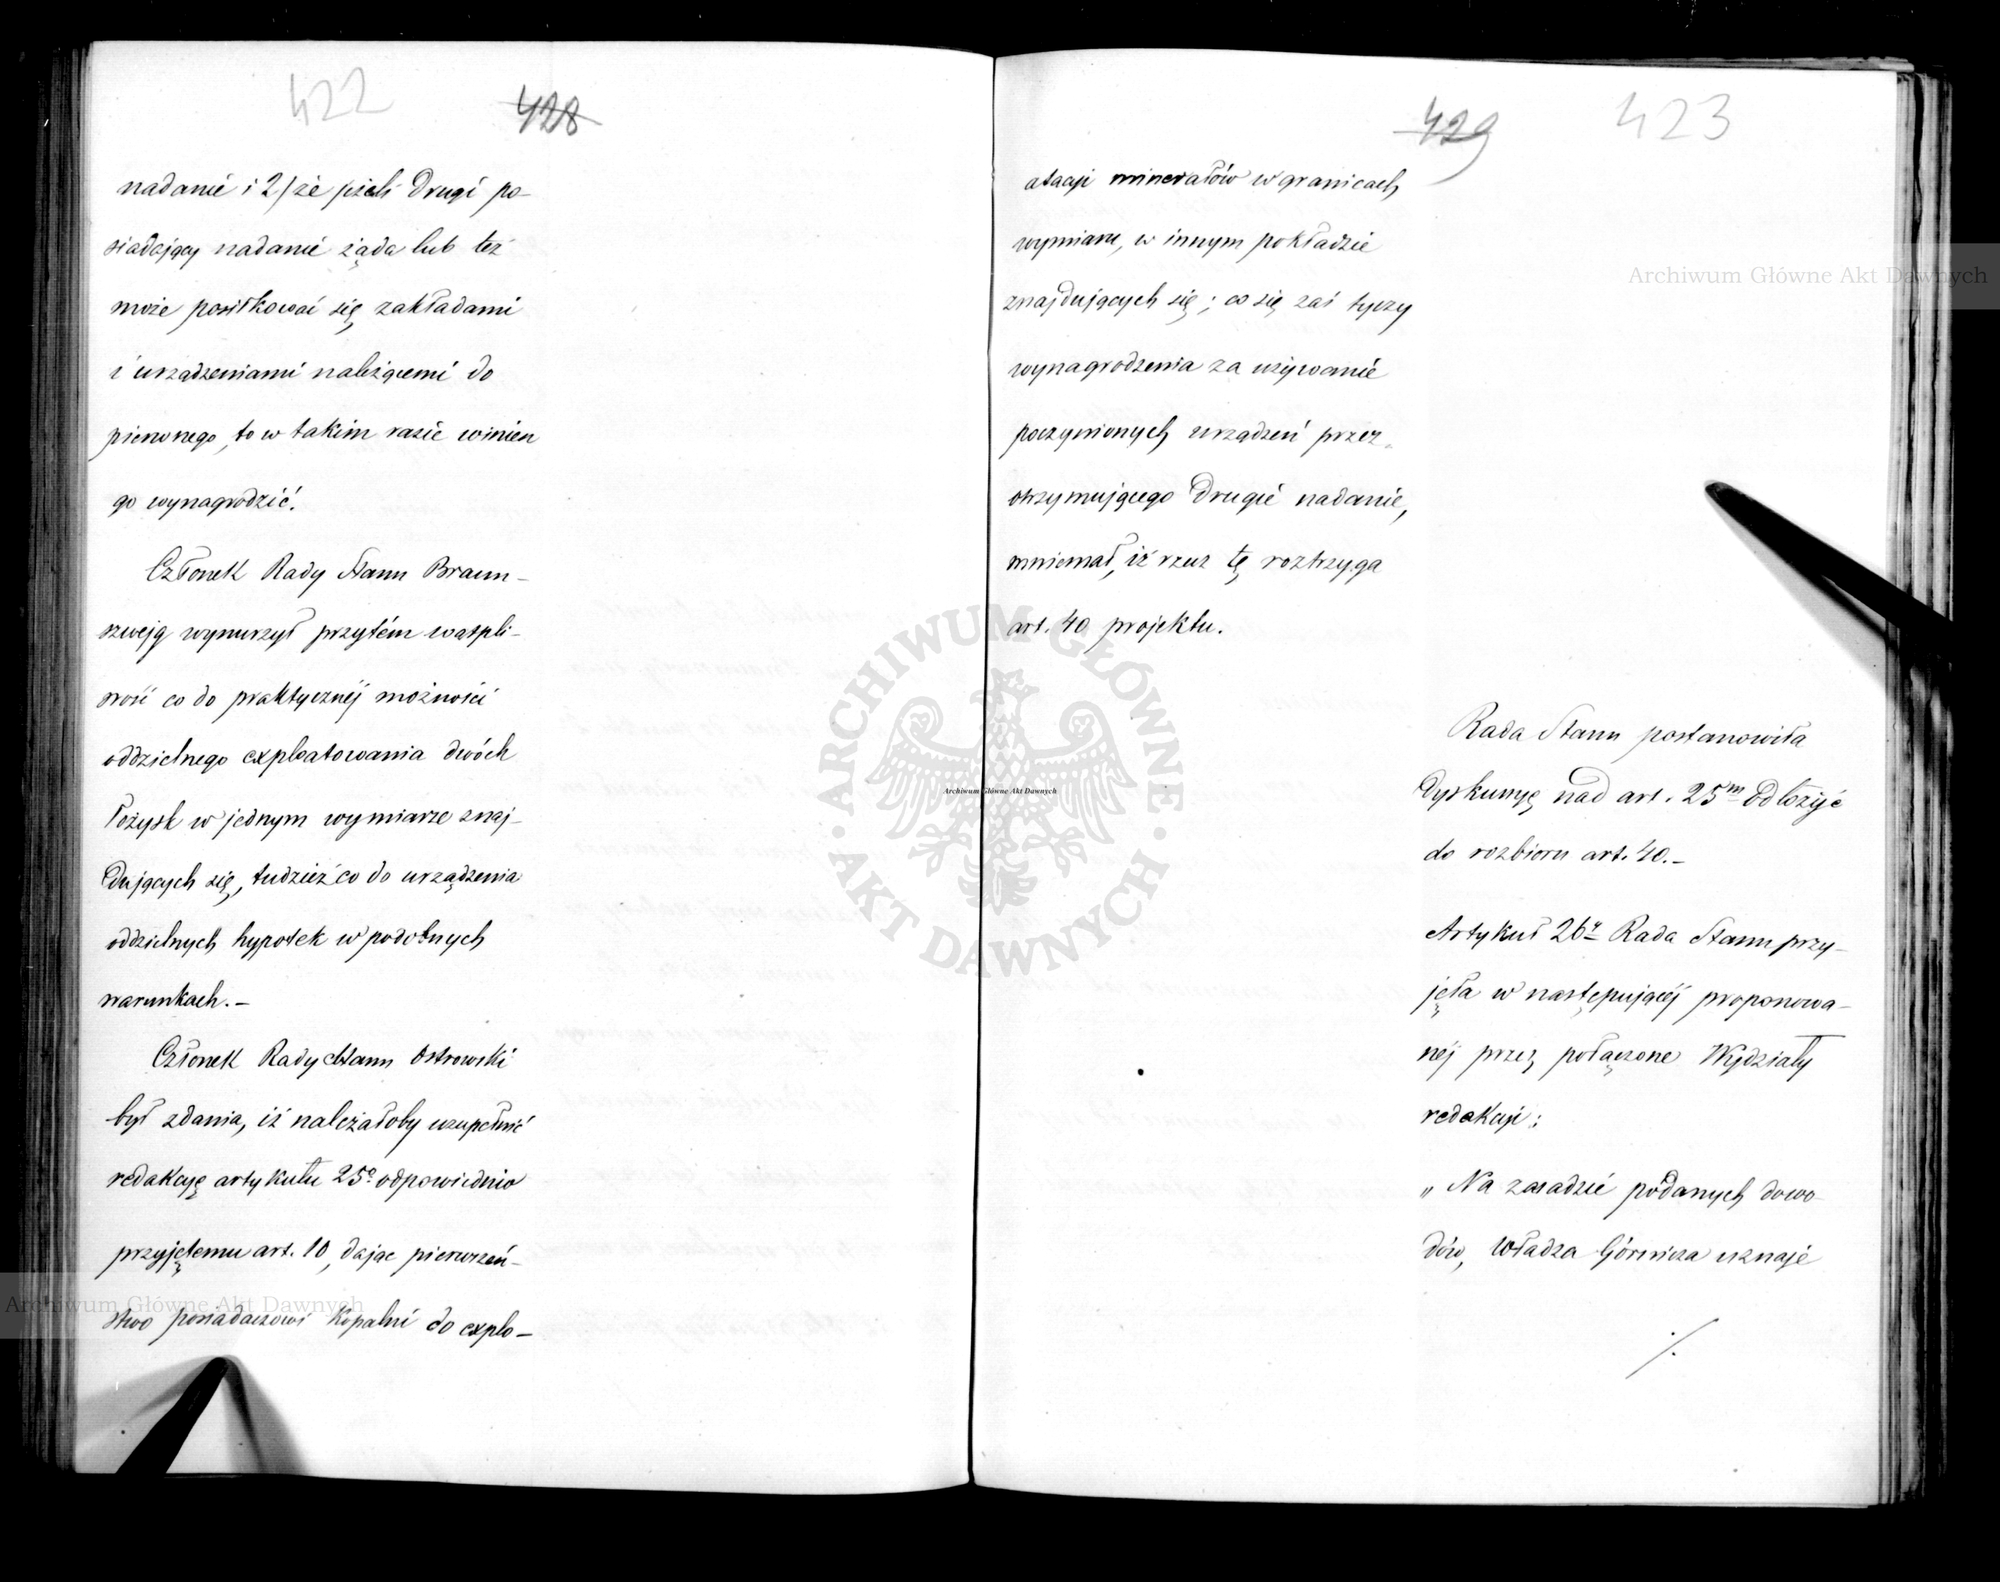 422
428
nadanie i 2/ że jeżeli drugi po-
siadający nadanie żąda lub też
może posiłkować się zakładami
i urządzeniami należącemi do
pierwszego, to w takim razie winien
go wynagrodzić.
Członek Rady Stanu Braun-
szwejg wynurzył przytém wątpli-
wość co do praktycznéj możności
oddzielnego exploatowania dwóch
łożysk w jednym wymiarze znaj-
dujących się, tudzież co do urządzenia
oddzielnych hypotek w podobnych
warunkach.-
Członek Rady Stanu Ostrowski
był zdania, iż należałoby uzupełnić
redakcyę artykułu 25º odpowiednio
przyjętemu art. 10, dając pierwszeń-
stwo posiadaczowi kopalni do explo-
429
423
atacji minerałów w granicach
wymiaru, w innym pokładzie
znajdujących się; co się zaś tyczy
wynagrodzenia za używanie
poczynionych urządzeń przez
otrzymującego drugie nadanie,
mniemał, iż rzecz tę roztrzyga
art. 40 projektu.
Rada Stanu postanowiła
dyskusyę nad art. 25m odłożyć
do rozbioru art. 40.-
Artykuł 26y Rada Stanu przy-
jęła w następującéj proponowa-
néj przez połączone Wydziały
redakcji:
„Na zasadzie podanych dowo-
dów, Władza Górnicza uznaje
./.
Archiwum Główne Akt Dawnych
Archiwum Główne Akt Dawnych
Archiwum Główne Akt Dawnych
ARCHIWUM GŁÓWNE
AKT DAWNYCH